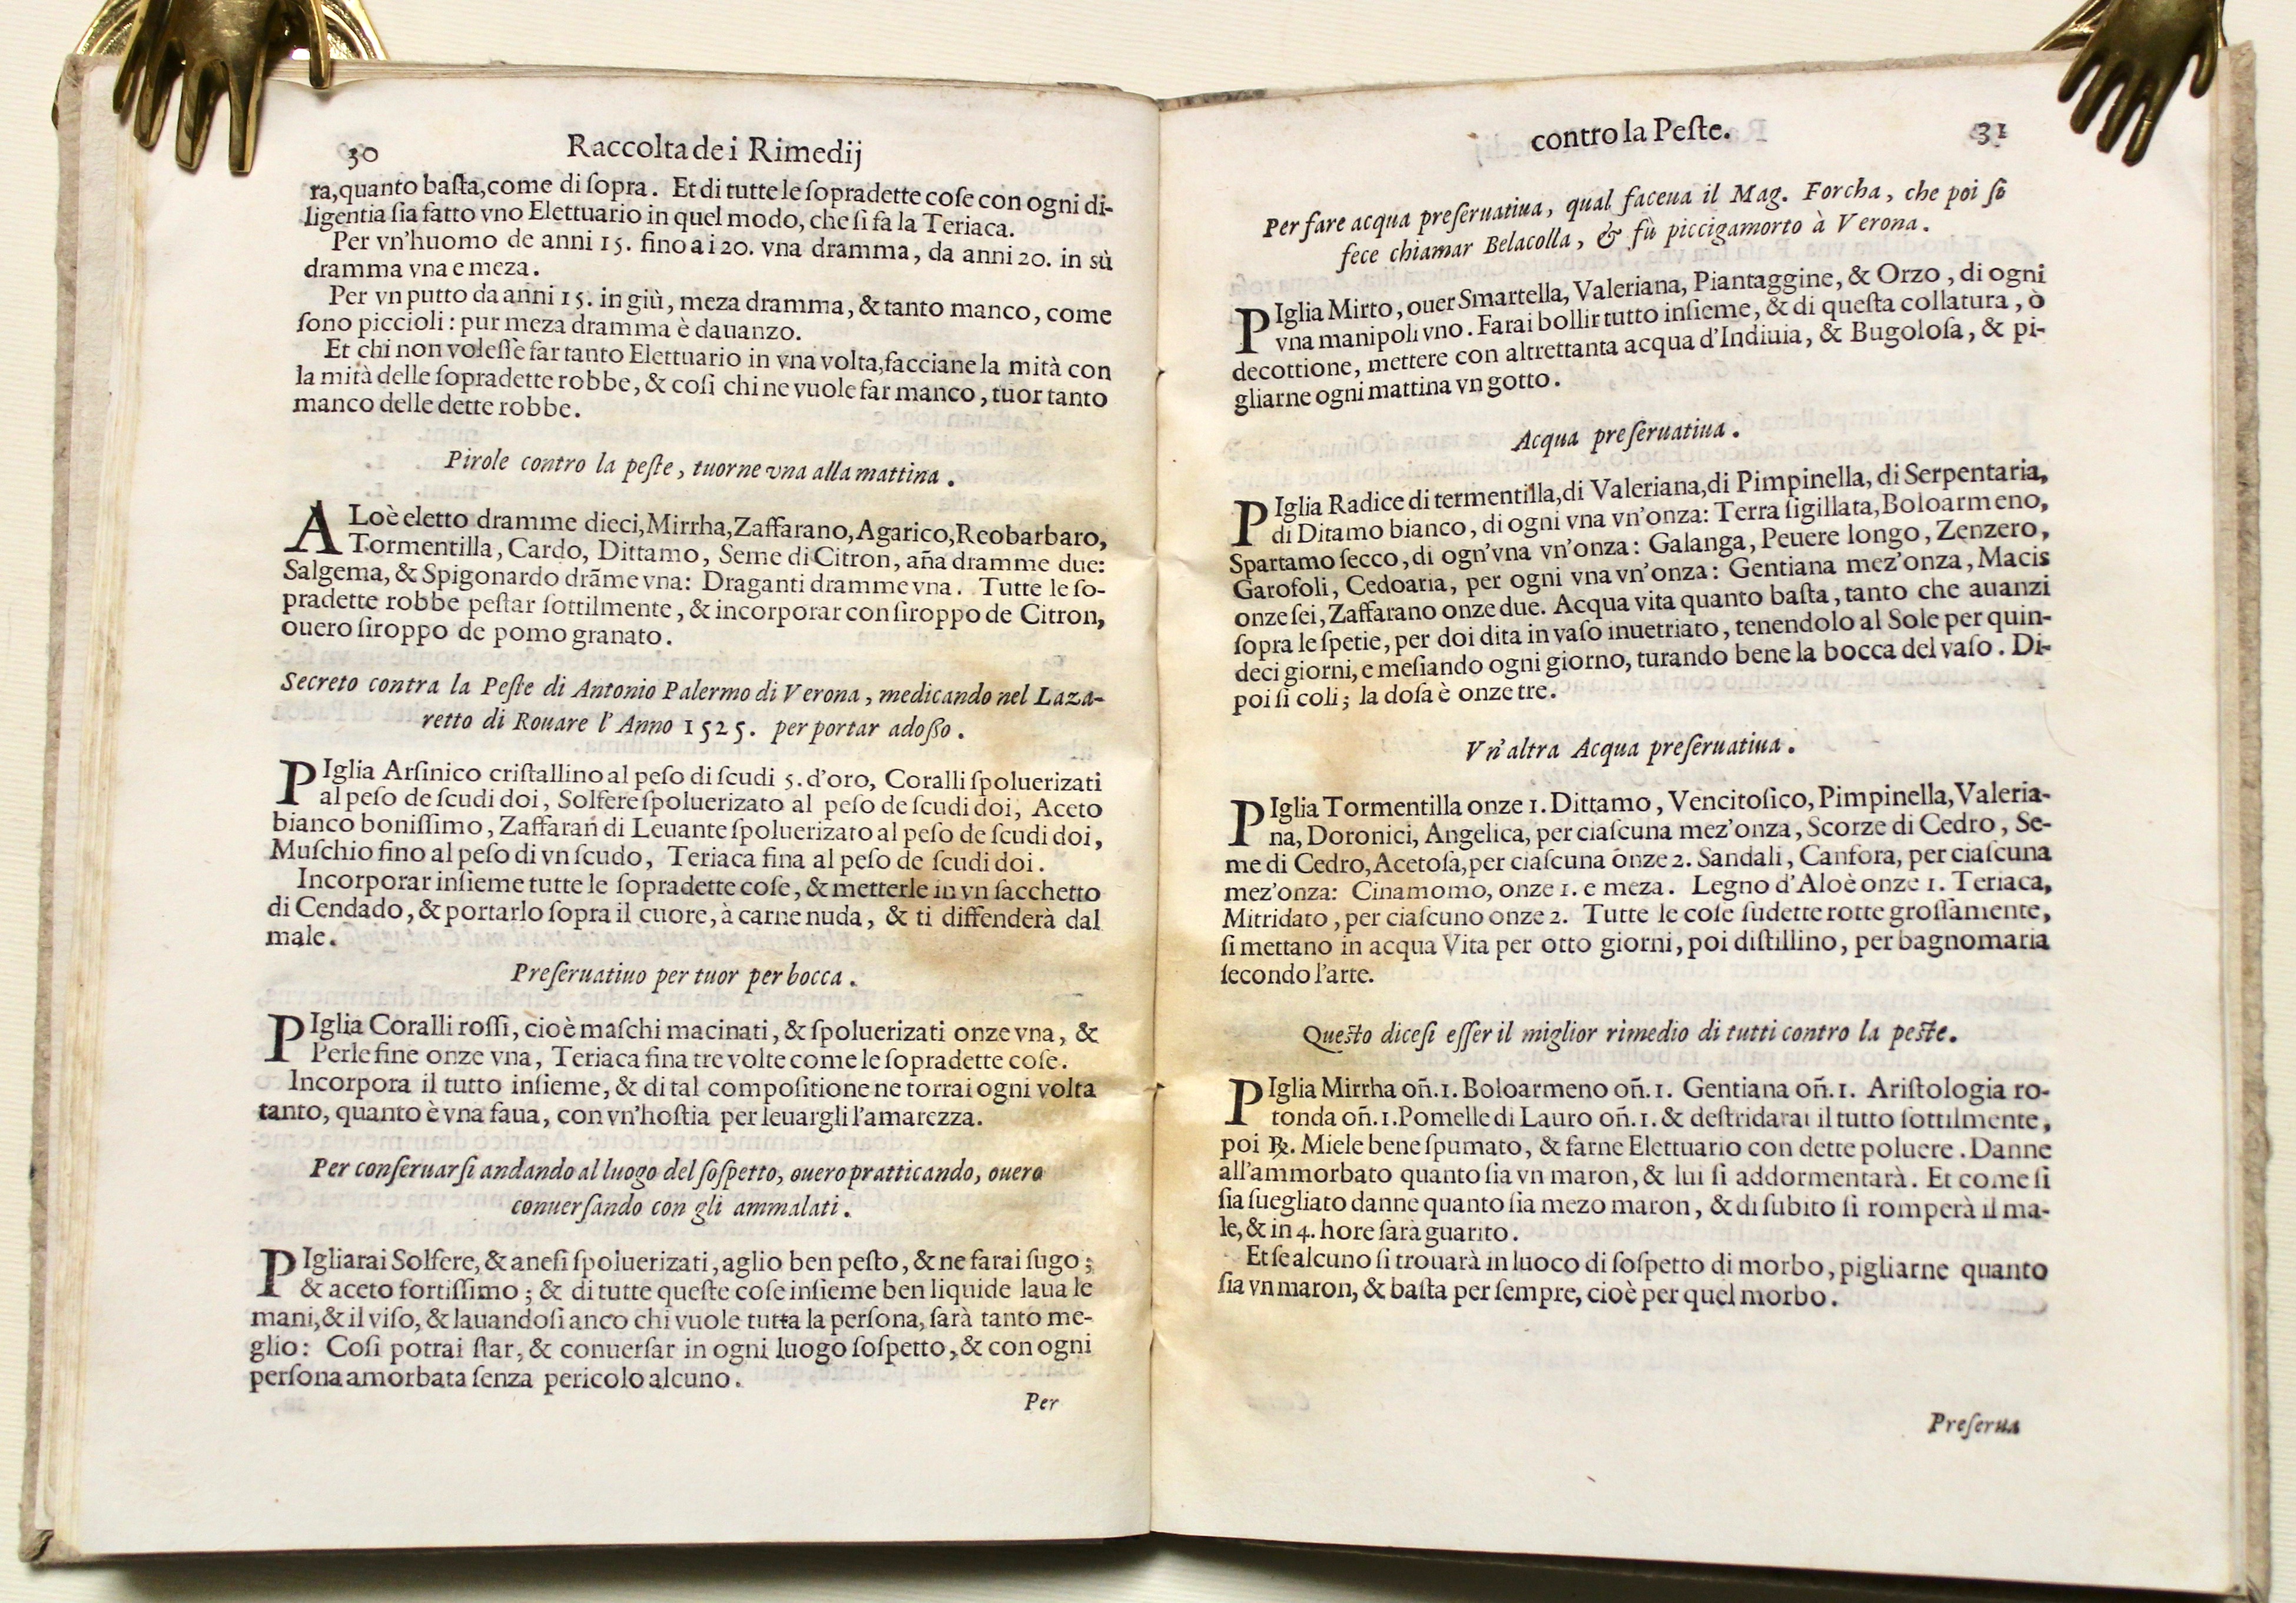 30 Raccolta de i Rimedij
ra, quanto baſta, come di ſopra. Et di tutte le ſopradette coſe con ogni di-
ligentia ſia fatto vno Elettuario in quel modo, che ſi fa la Teriaca.
Per vn'huomo de anni 15. fino a i 20. vna dramma, da anni 20. in sù
dramma vna e meza.
Per vn putto da anni 15. in giù, meza dramma, & tanto manco, come
ſono piccioli: pur meza dramma è dauanzo.
Et chi non voleſſe far tanto Elettuario in vna volta, facciane la mità con
la mità delle ſopradette robbe, & coſi chi ne vuole far manco, tuor tanto
manco delle dette robbe.
Pirole contro la peſte, tuorne vna alla mattina.
ALoè eletto dramme dieci, Mirrha, Zaffarano, Agarico, Reobarbaro,
Tormentilla, Cardo, Dittamo, Seme di Citron, aña dramme due:
Salgema, & Spigonardo drãme vna: Draganti dramme vna. Tutte le ſo-
pradette robbe peſtar ſottilmente, & incorporar con ſiroppo de Citron,
ouero ſiroppo de pomo granato.
Secreto contra la Peſte di Antonio Palermo di Verona, medicando nel Laza-
retto di Rouare l'Anno 1525. per portar adoſſo.
PIglia Arſinico criſtallino al peſo di ſcudi 5. d'oro, Coralli ſpoluerizati
al peſo de ſcudi doi, Solfere ſpoluerizato al peſo de ſcudi doi, Aceto
bianco boniſſimo, Zaffarañ di Leuante ſpoluerizato al peſo de ſcudi doi,
Muſchio fino al peſo di vn ſcudo, Teriaca fina al peſo de ſcudi doi.
Incorporar inſieme tutte le ſopradette coſe, & metterle in vn ſacchetto
di Cendado, & portarlo ſopra il cuore, à carne nuda, & ti diffenderà dal
male.
Preſeruatiuo per tuor per bocca.
PIglia Coralli roſſi, cioè maſchi macinati, & ſpoluerizati onze vna, &
Perle fine onze vna, Teriaca fina tre volte come le ſopradette coſe.
Incorpora il tutto inſieme, & di tal compoſitione ne torrai ogni volta
tanto, quanto è vna faua, con vn'hoſtia per leuargli l'amarezza.
Per conſeruarſi andando al luogo del ſoſpetto, ouero pratticando, ouero
conuerſando con gli ammalati.
PIgliarai Solfere, & aneſi ſpoluerizati, aglio ben peſto, & ne farai ſugo;
& aceto fortiſſimo; & di tutte queſte coſe inſieme ben liquide laua le
mani, & il viſo, & lauandoſi anco chi vuole tutta la perſona, ſarà tanto me-
glio: Coſi potrai ſtar, & conuerſar in ogni luogo ſoſpetto, & con ogni
perſona amorbata ſenza pericolo alcuno.
Per
contro la Peſte. 31
Per fare acqua preſeruatiua, qual faceua il Mag. Forcha, che poi ſo
fece chiamar Belacolla, & fù piccigamorto à Verona.
PIglia Mirto, ouer Smartella, Valeriana, Piantaggine, & Orzo, di ogni
vna manipoli vno. Farai bollir tutto inſieme, & di queſta collatura, ò
decottione, mettere con altrettanta acqua d'Indiuia, & Bugoloſa, & pi-
gliarne ogni mattina vn gotto.
Acqua preſeruatiua.
PIglia Radice di termentilla, di Valeriana, di Pimpinella, di Serpentaria,
di Ditamo bianco, di ogni vna vn'onza: Terra ſigillata, Boloarmeno,
Spartamo ſecco, di ogn'vna vn'onza: Galanga, Peuere longo, Zenzero,
Garofoli, Cedoaria, per ogni vna vn'onza: Gentiana mez'onza, Macis
onze ſei, Zaffarano onze due. Acqua vita quanto baſta, tanto che auanzi
ſopra le ſpetie, per doi dita in vaſo inuetriato, tenendolo al Sole per quin-
deci giorni, e meſiando ogni giorno, turando bene la bocca del vaſo. Di-
poi ſi coli; la doſa è onze tre.
Vn'altra Acqua preſeruatiua.
PIglia Tormentilla onze 1. Dittamo, Vencitoſico, Pimpinella, Valeria-
na, Doronici, Angelica, per ciaſcuna mez'onza, Scorze di Cedro, Se-
me di Cedro, Acetoſa, per ciaſcuna onze 2. Sandali, Canfora, per ciaſcuna
mez'onza: Cinamomo, onze 1. e meza. Legno d'Aloè onze 1. Teriaca,
Mitridato, per ciaſcuno onze 2. Tutte le coſe ſudette rotte groſſamente,
ſi mettano in acqua Vita per otto giorni, poi diſtillino, per bagnomaria
ſecondo l'arte.
Queſto diceſi eſſer il miglior rimedio di tutti contro la peſte.
PIglia Mirrha oñ. 1. Boloarmeno oñ. 1. Gentiana oñ. 1. Ariſtologia ro-
tonda oñ. 1. Pomelle di Lauro oñ. 1. & deſtridarai il tutto ſottilmente,
poi ℞. Miele bene ſpumato, & farne Elettuario con dette poluere. Danne
all'ammorbato quanto ſia vn maron, & lui ſi addormentarà. Et come ſi
ſia ſuegliato danne quanto ſia mezo maron, & di ſubito ſi romperà il ma-
le, & in 4. hore ſarà guarito.
Et ſe alcuno ſi trouarà in luoco di ſoſpetto di morbo, pigliarne quanto
ſia vn maron, & baſta per ſempre, cioè per quel morbo.
Preſerua